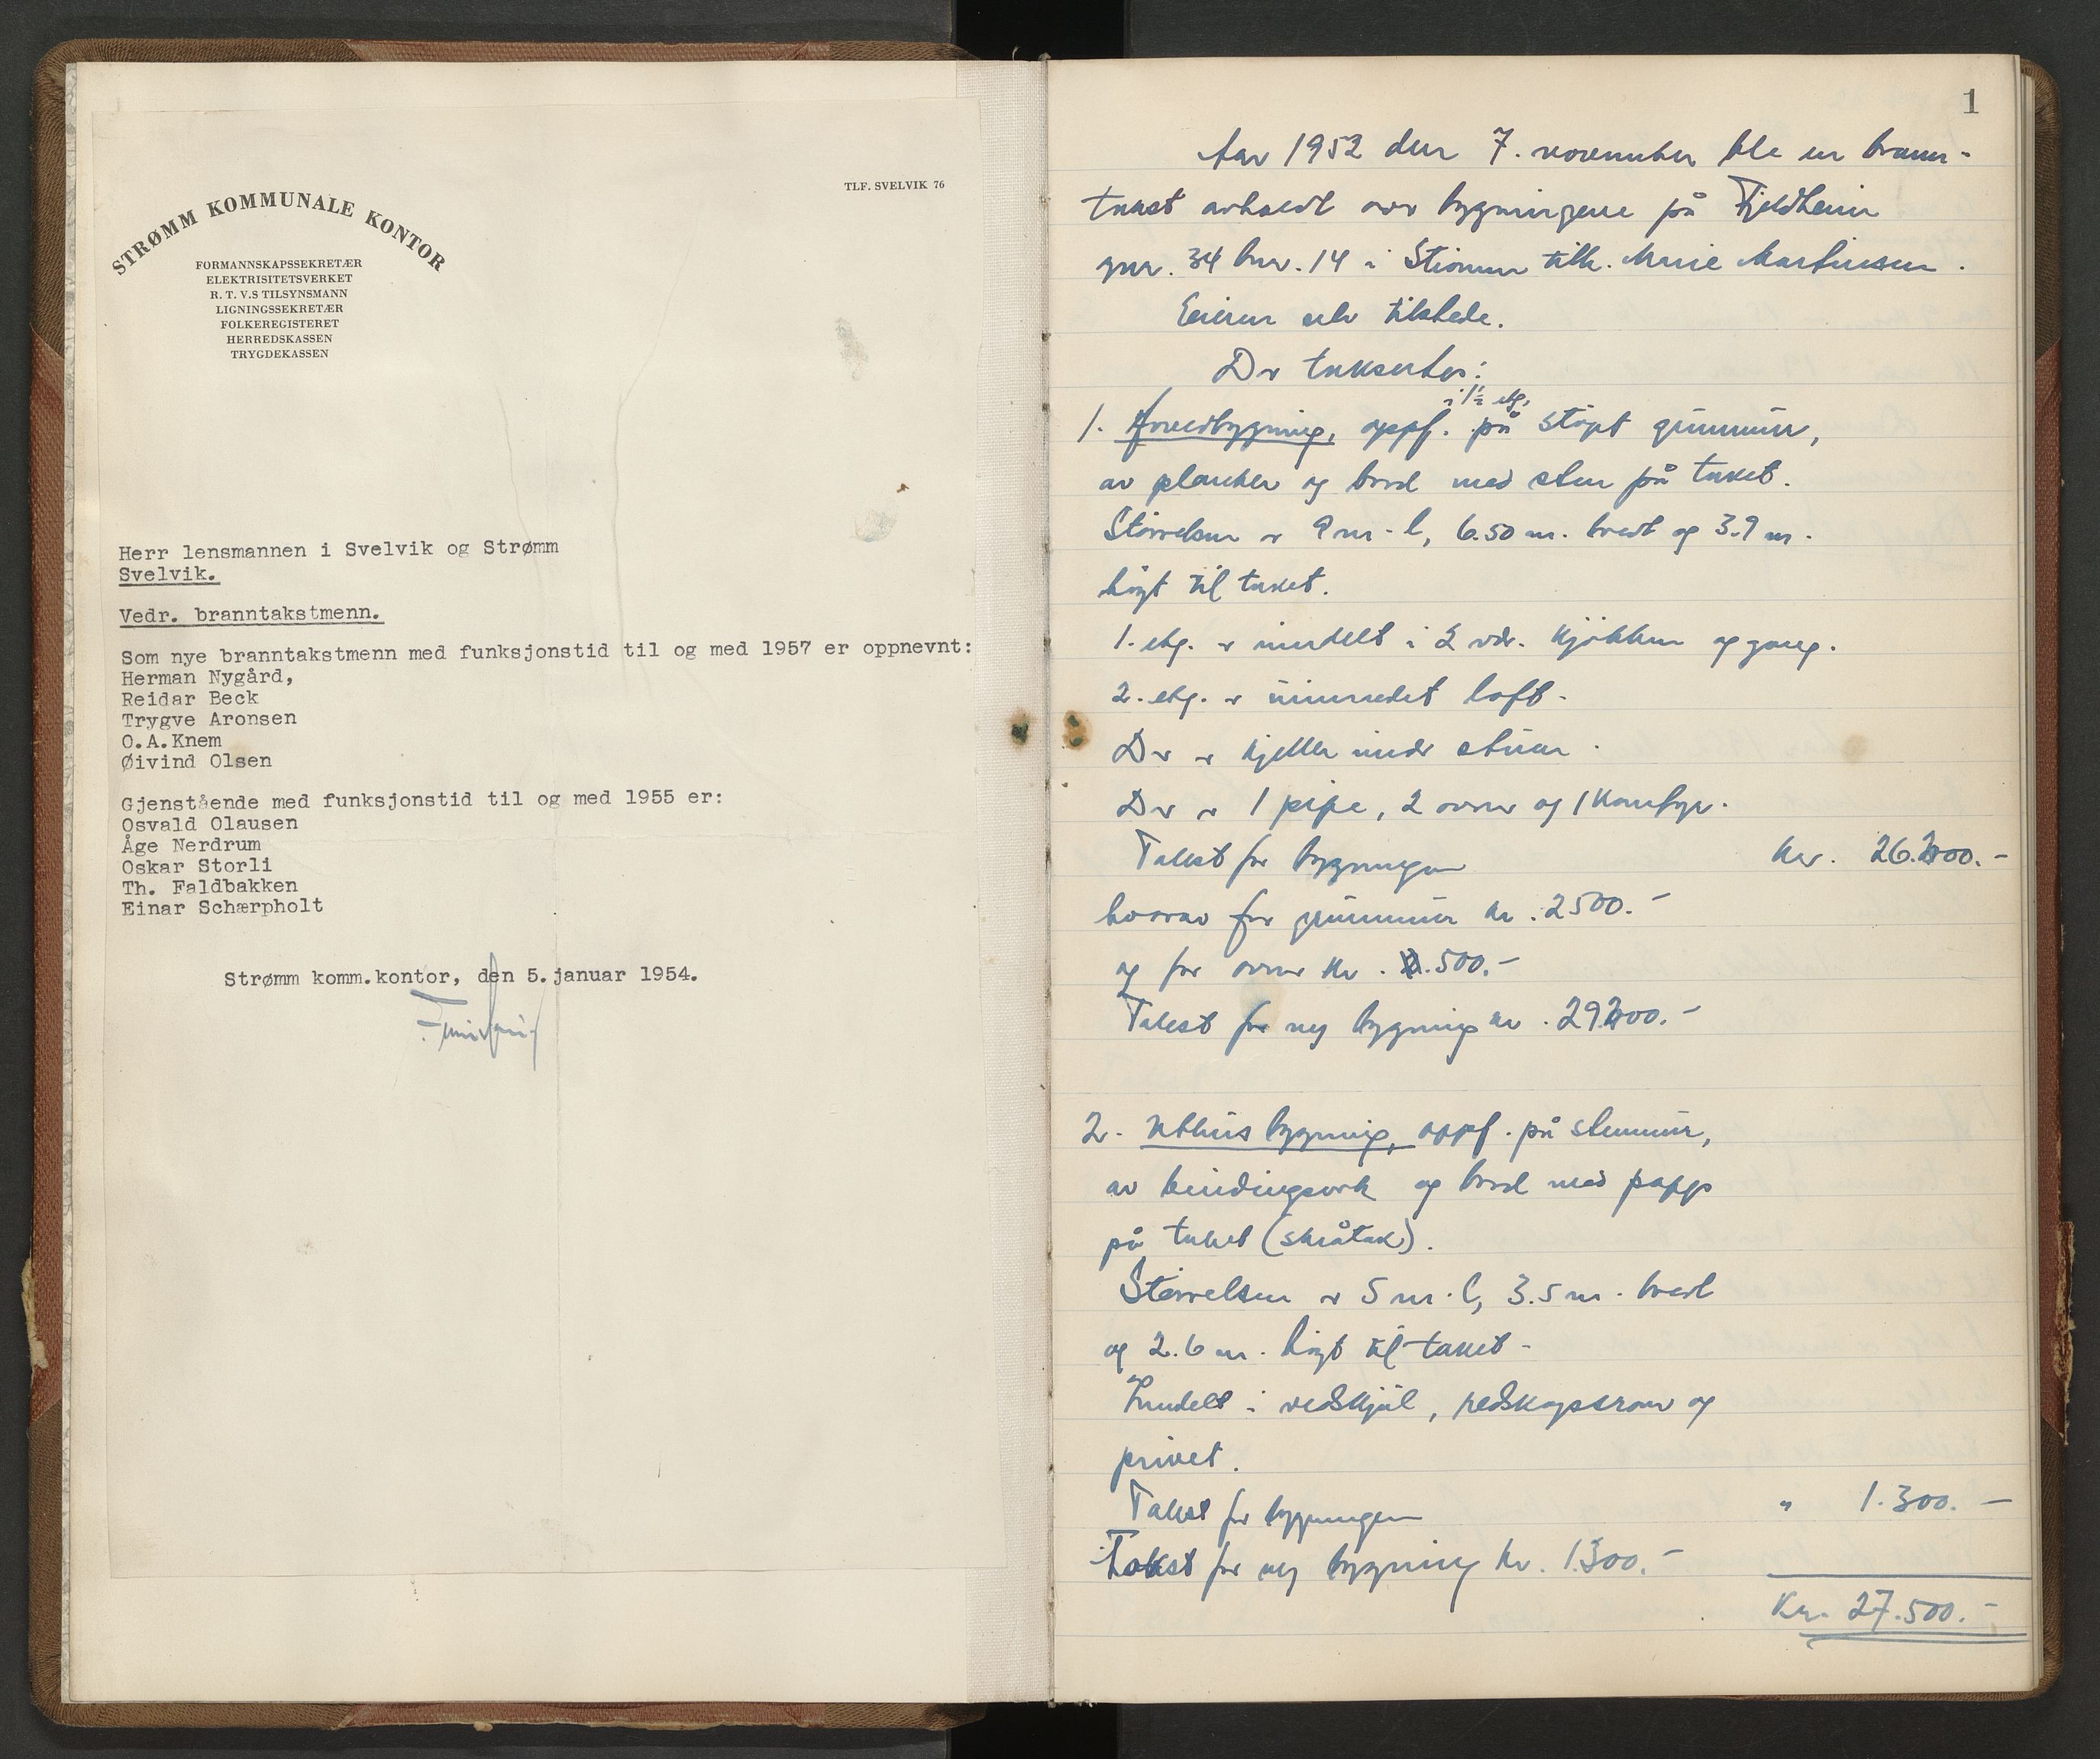 TLF. SVELVIK 76
STRØMM KOMMUNALE KONTOR
FORMANNSKAPSSEKRETÆR
ELEKTRISITETSVERKET
R. T. V.S TILSYNSMANN
LIGNINGSSEKRETÆR
FOLKEREGISTERET
HERREDSKASSEN
TRYGDEKASSEN
Herr lensmannen i Svelvik og Strømm
Svelvik.
Vedr. branntakstmenn.
Som nye branntakstmenn med funksjonstid til og med 1957 er oppnevnt:
Herman Nygård,
Reidar Beck
Trygve Aronsen
O.A.Knem
Øivind Olsen
Gjenstående med funksjonstid til og med 1955 er:
Osvald Olausen
Åge Nerdrum
Oskar Storli
Th. Faldbakken
Einar Schærpholt
Strømm komm.kontor, den 5.januar 1954.
1
Aar 1952 den 7. november ble en brann-
takst avholdt over bygningene på Fjeldheim
gnr. 34 bnr. 14 i Strømm tilh. Marie Martinsen.
Eieren selv tilstede.
Der taksertes:
i 1½ etg.
1. Hovedbygning, oppf. på støpt grunnmur,
av planker og bord med sten på taket.
Størrelsen er 9 m. l, 6.50 m. bredt og 3.9 m.
høgt til taket.
1. etg. er inndelt i 2 vær. kjøkken og gang.
2. etg. er uinnredet loft.
Der er kjeller under stuen.
Der er 1 pipe, 2 ovner og 1 komfyr.
Takst for bygningen kr. 26.200.-
hvorav for grunnmur kr. 2500.-
og for ovner kr. 500.-
Takst for ny bygning kr. 29.200.-
2. Uthusbygning, oppf. på stenmur,
av bindingsverk og bord med papp
på taket (skråtak).
Størrelsen er 5 m. l, 3.5 m. bredt
og 2.6 m. høgt til taket.
Inndelt i vedskjul, redskapsrom og
privet.
Takst for bygningen " 1.300.-
Takst for ny bygning kr. 1.300.-
Kr. 27.500.-